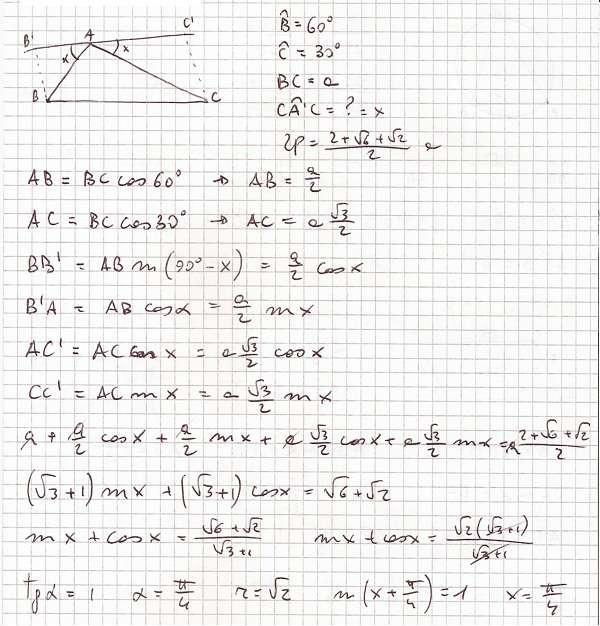 B' A C'
α x
B C
B̂ = 60°
Ĉ = 30°
BC = a
CÂ'C = ? = x
2p = (2+√6+√2)/2 a
AB = BC cos 60° → AB = a/2
AC = BC cos 30° → AC = a √3/2
BB' = AB sn (90° - x) = a/2 cos x
B'A = AB cos α = a/2 sn x
AC' = AC cos x = a √3/2 cos x
CC' = AC sn x = a √3/2 sn x
a + a/2 cos x + a/2 sn x + a √3/2 cos x + a √3/2 sn x = a (2+√6+√2)/2
(√3+1) sn x + (√3+1) cos x = √6 + √2
sn x + cos x = (√6+√2)/(√3+1) sn x + cos x = √2(√3+1)/(√3+1)
tg α = 1 α = π/4 r = √2 sn (x + π/4) = 1 x = π/4